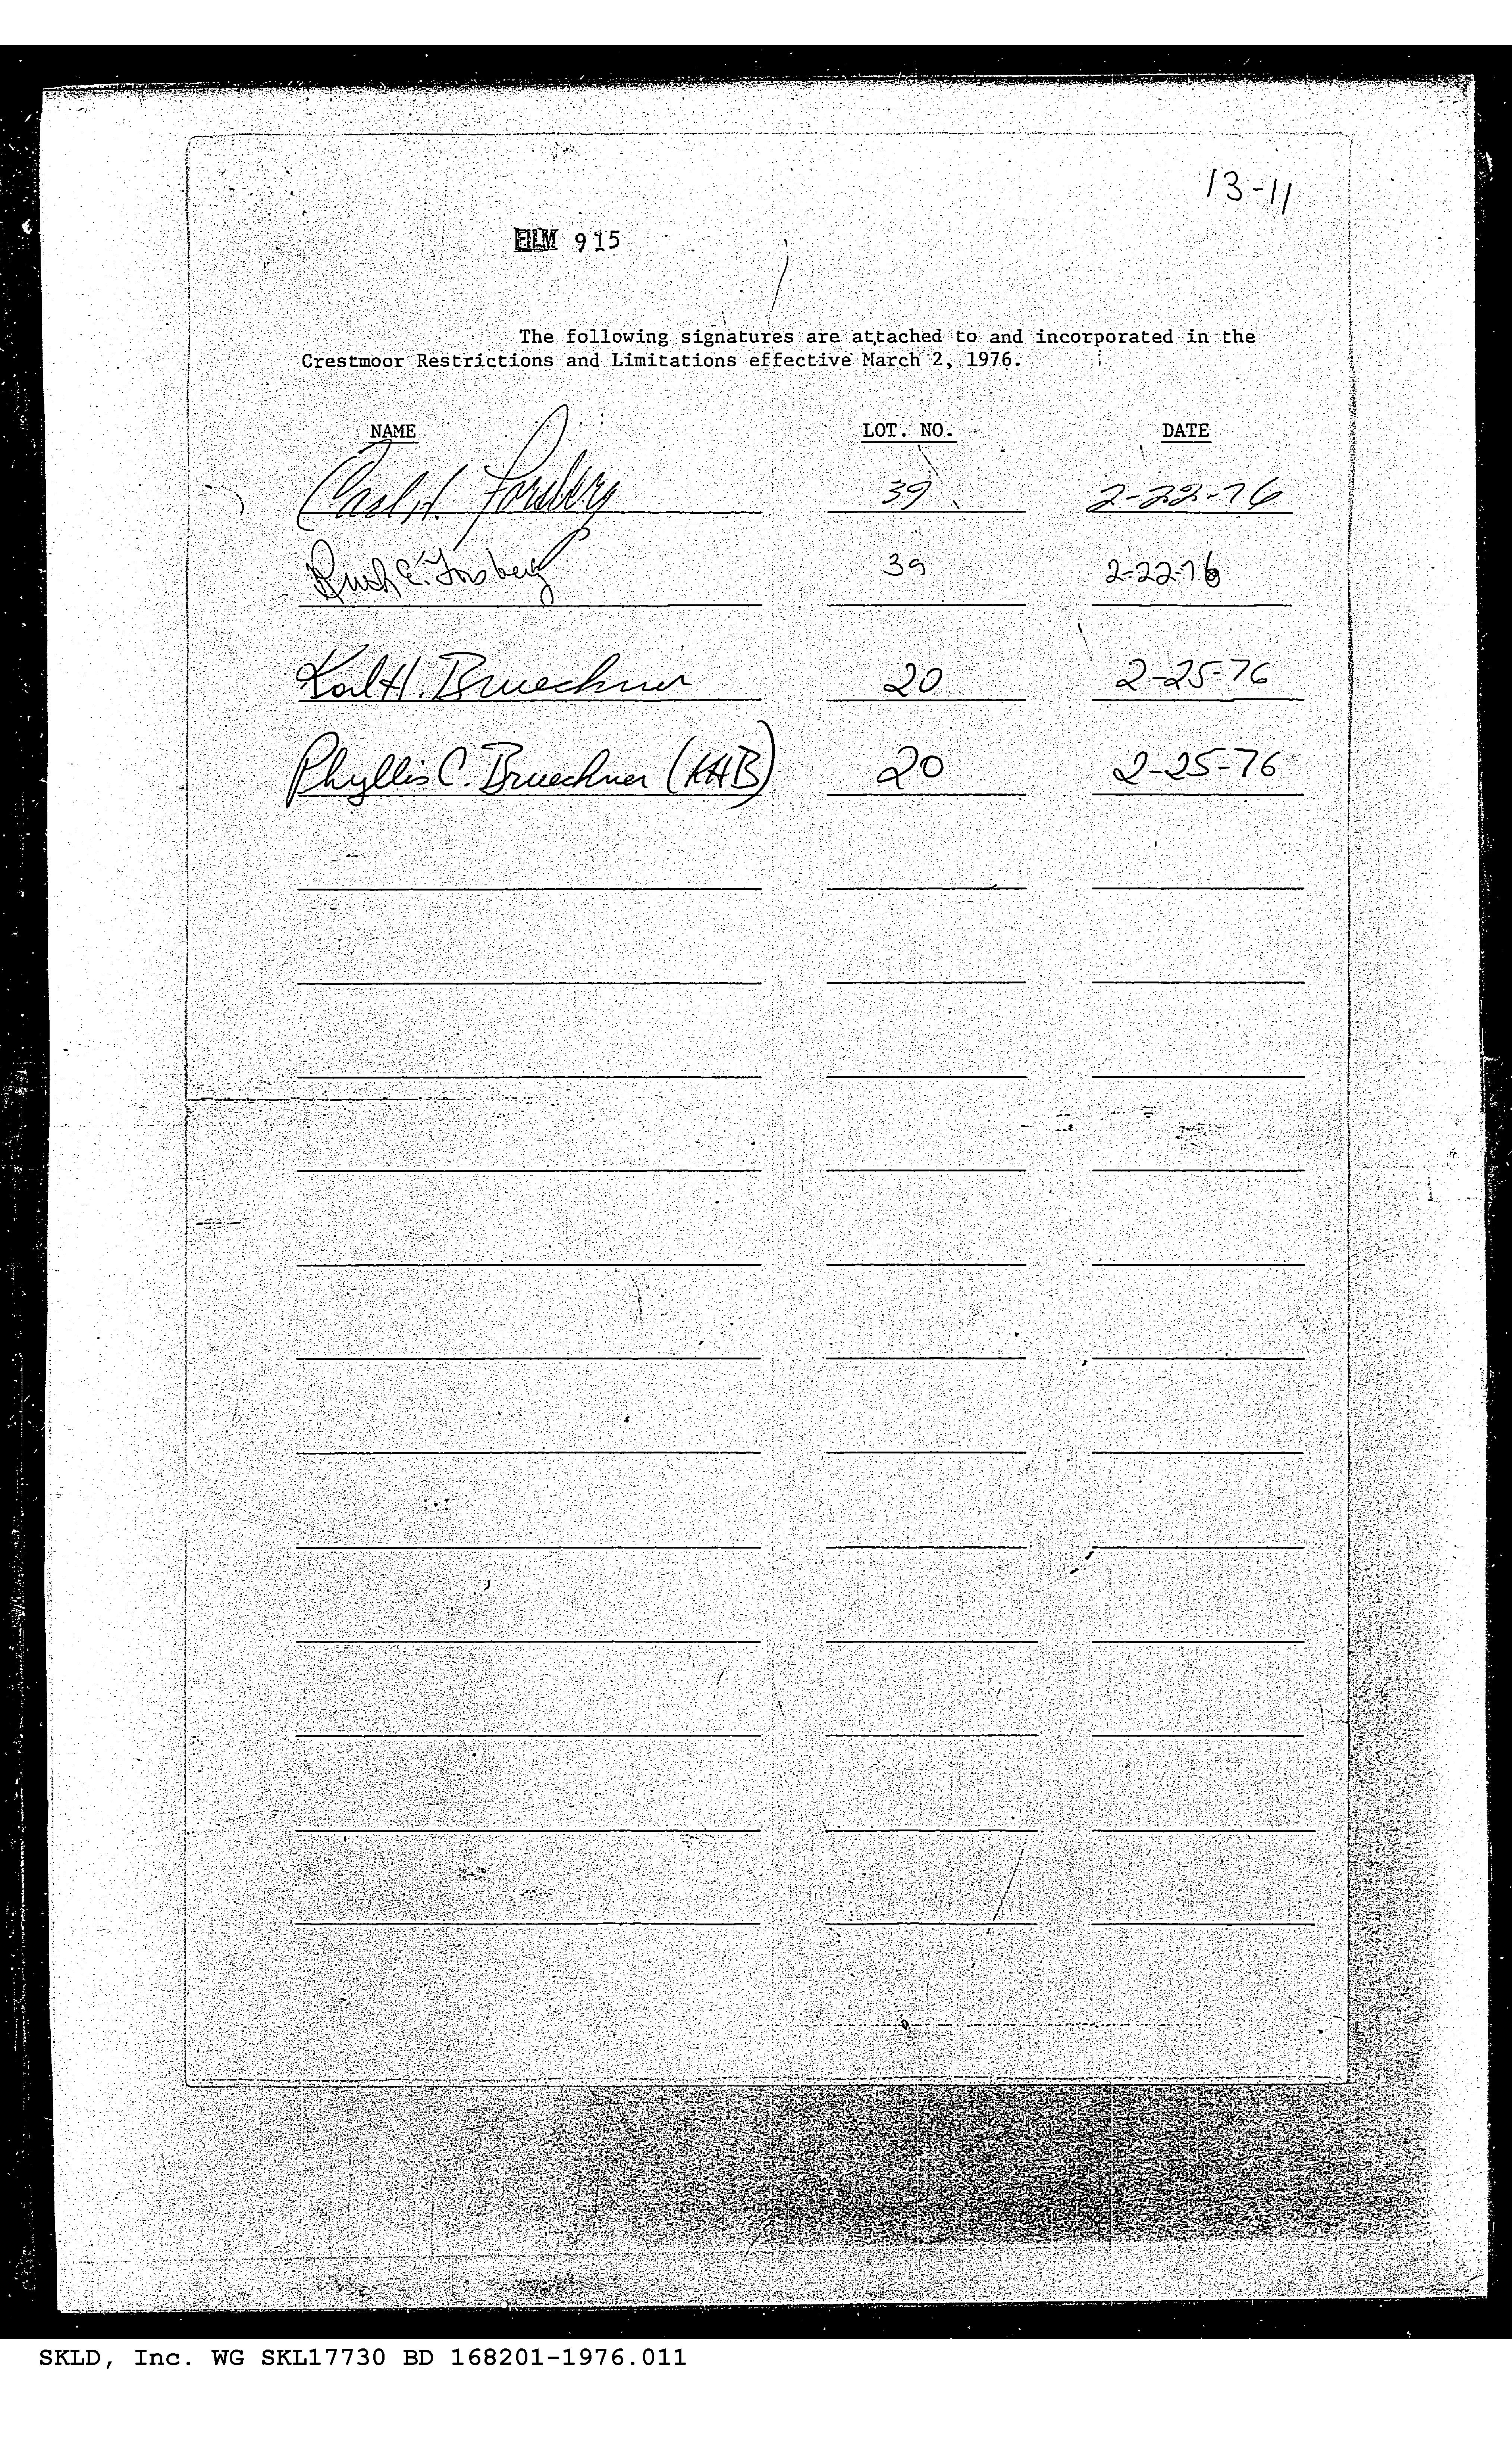 13-11
FILM 915
The following signatures are attached to and incorporated in the
Crestmoor Restrictions and Limitations effective March 2, 1976.
NAME LOT. NO. DATE
Carl H. Forsberg 39 2-22-76
Ruth E. Forsberg 39 2-22-76
Karl H. Brueckner 20 2-25-76
Phyllis C. Brueckner (KHB) 20 2-25-76
SKLD, Inc. WG SKL17730 BD 168201-1976.011